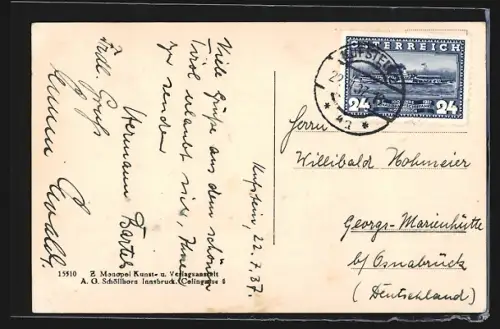 Viele Grüße aus dem schönen
Tirol erlaubt sich, Ihnen
zu senden
Hermann Bartels
Frdl. Gruß
Kufstein, 22.7.37.
KUFSTEIN
ÖSTERREICH
24 24
Herrn
Willibald Hohmeier
Georgs-Marienhütte
b/Osnabrück
(Deutschland)
15910 Z. Monopol Kunst- u. Verlagsanstalt
A. G. Schöllhorn Innsbruck, Colingasse 6